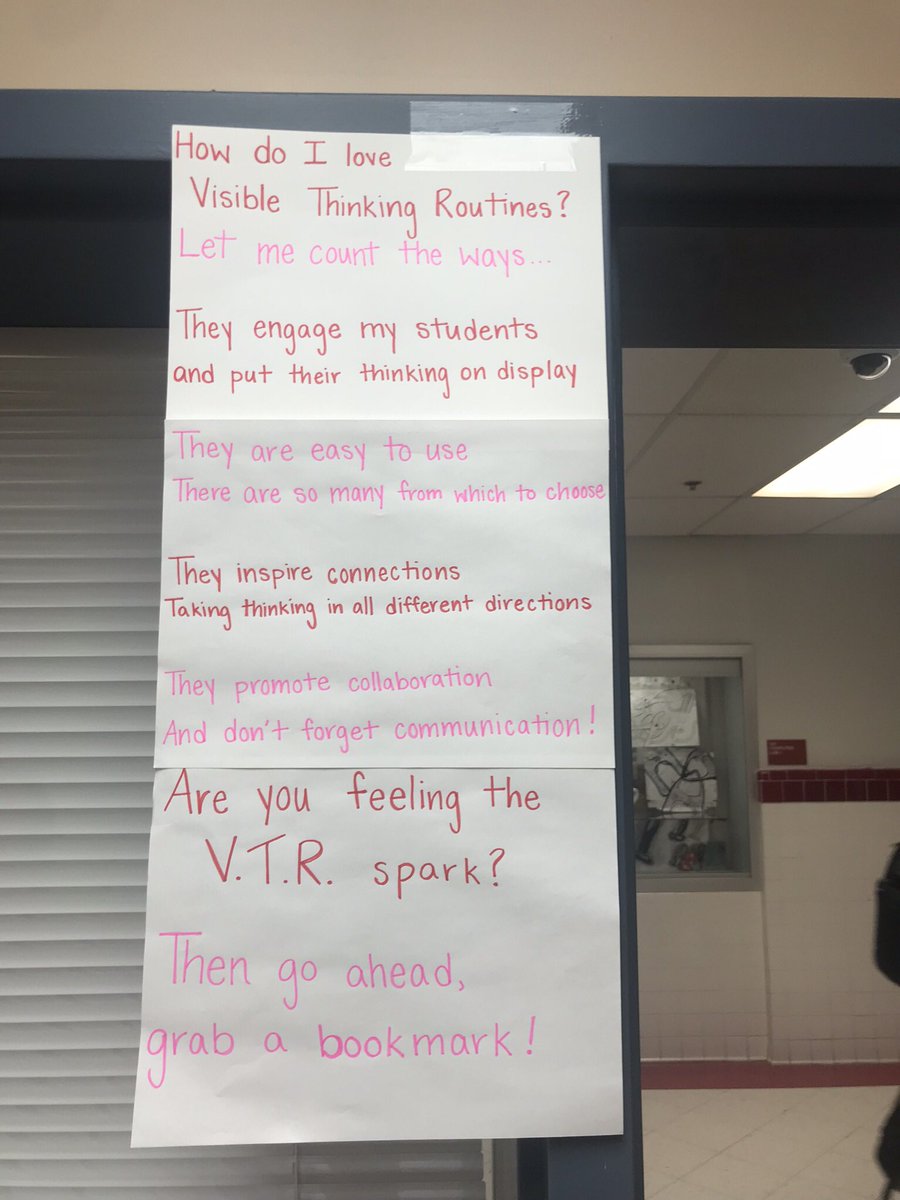 How do I love
Visible Thinking Routines?
Let me count the ways...
They engage my students
and put their thinking on display
They are easy to use
There are so many from which to choose
They inspire connections
Taking thinking in all different directions
They promote collaboration
And don't forget communication!
Are you feeling the
V.T.R. spark?
Then go ahead,
grab a bookmark!